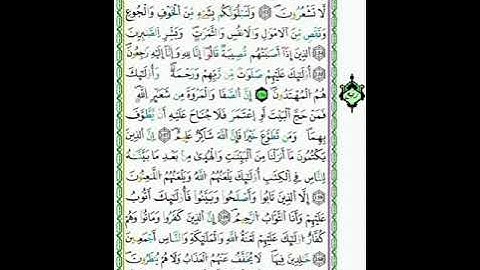 لَّا تَشْعُرُونَ ۝ وَلَنَبْلُوَنَّكُم بِشَيْءٍ مِّنَ ٱلْخَوْفِ وَٱلْجُوعِ
وَنَقْصٍ مِّنَ ٱلْأَمْوَٰلِ وَٱلْأَنفُسِ وَٱلثَّمَرَٰتِ وَبَشِّرِ ٱلصَّٰبِرِينَ
ٱلَّذِينَ إِذَآ أَصَٰبَتْهُم مُّصِيبَةٌ قَالُوٓا۟ إِنَّا لِلَّهِ وَإِنَّآ إِلَيْهِ رَٰجِعُونَ
أُو۟لَٰٓئِكَ عَلَيْهِمْ صَلَوَٰتٌ مِّن رَّبِّهِمْ وَرَحْمَةٌ وَأُو۟لَٰٓئِكَ
هُمُ ٱلْمُهْتَدُونَ ۝ إِنَّ ٱلصَّفَا وَٱلْمَرْوَةَ مِن شَعَآئِرِ ٱللَّهِ
فَمَنْ حَجَّ ٱلْبَيْتَ أَوِ ٱعْتَمَرَ فَلَا جُنَاحَ عَلَيْهِ أَن يَطَّوَّفَ
بِهِمَا وَمَن تَطَوَّعَ خَيْرًا فَإِنَّ ٱللَّهَ شَاكِرٌ عَلِيمٌ ۝ إِنَّ ٱلَّذِينَ
يَكْتُمُونَ مَآ أَنزَلْنَا مِنَ ٱلْبَيِّنَٰتِ وَٱلْهُدَىٰ مِنۢ بَعْدِ مَا بَيَّنَّٰهُ
لِلنَّاسِ فِى ٱلْكِتَٰبِ أُو۟لَٰٓئِكَ يَلْعَنُهُمُ ٱللَّهُ وَيَلْعَنُهُمُ ٱللَّٰعِنُونَ
إِلَّا ٱلَّذِينَ تَابُوا۟ وَأَصْلَحُوا۟ وَبَيَّنُوا۟ فَأُو۟لَٰٓئِكَ أَتُوبُ
عَلَيْهِمْ وَأَنَا ٱلتَّوَّابُ ٱلرَّحِيمُ ۝ إِنَّ ٱلَّذِينَ كَفَرُوا۟ وَمَاتُوا۟ وَهُمْ
كُفَّارٌ أُو۟لَٰٓئِكَ عَلَيْهِمْ لَعْنَةُ ٱللَّهِ وَٱلْمَلَٰٓئِكَةِ وَٱلنَّاسِ أَجْمَعِينَ
خَٰلِدِينَ فِيهَا لَا يُخَفَّفُ عَنْهُمُ ٱلْعَذَابُ وَلَا هُمْ يُنظَرُونَ